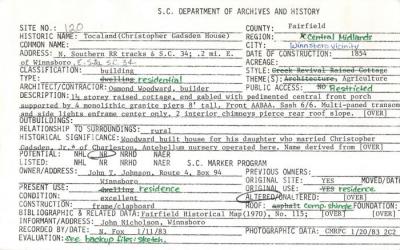 S.C. DEPARTMENT OF ARCHIVES AND HISTORY
SITE NO.: 120 COUNTY: Fairfield
HISTORIC NAME: Tocaland(Christopher Gadsden House) REGION: Central Midlands
COMMON NAME: CITY: Winnsboro vicinity
ADDRESS: N. Southern RR tracks & SC. 34; .2 mi. E. DATE OF CONSTRUCTION: 1854
of Winnsboro, E. side S.C. 34 ACREAGE:
CLASSIFICATION: building STYLE: Greek Revival Raised Cottage
TYPE: dwelling residential THEME(S): Architecture, Agriculture
ARCHITECT/CONTRACTOR: Osmond Woodward, builder PUBLIC ACCESS: No Restricted
DESCRIPTION: 1½ storey raised cottage, end gabled with pedimented central front porch
supported by 4 monolithic granite piers 8' tall. Front AABAA. Sash 6/6. Multi-paned transom
and side lights enframe center only. 2 interior chimneys pierce rear roof slope. [OVER]
OUTBUILDINGS:
RELATIONSHIP TO SURROUNDINGS: rural
HISTORICAL SIGNIFICANCE: Woodward built house for his daughter who married Christopher
Gadsden, Jr.* of Charleston. Antebellum nursery operated here. Name derived from [OVER]
POTENTIAL: NHL NR NRHD NAER
LISTED: NHL NR NRHD NAER S.C. MARKER PROGRAM
OWNER/ADDRESS: John T. Johnson, Route 4, Box 94 PREVIOUS OWNERS:
Winnsboro ORIGINAL SITE: YES MOVED/DATE
PRESENT USE: dwelling residence ORIGINAL USE: YES residence
CONDITION: excellent ALTERED/UNALTERED: [OVER]
CONSTRUCTION: frame/clapboard ROOF: asphalt comp. shingle FOUNDATION:
BIBLIOGRAPHIC & RELATED DATA: Fairfield Historical Map(1970), No. 115; [OVER]
INFORMANT/ADDRESS: John Nicholson, Winnsboro
BY/DATE: N. Fox, 1/11/83 PHOTOGRAPHIC DATA: CMRPC 1/20/83 2C
EVALUATION: see backup files/sketch.